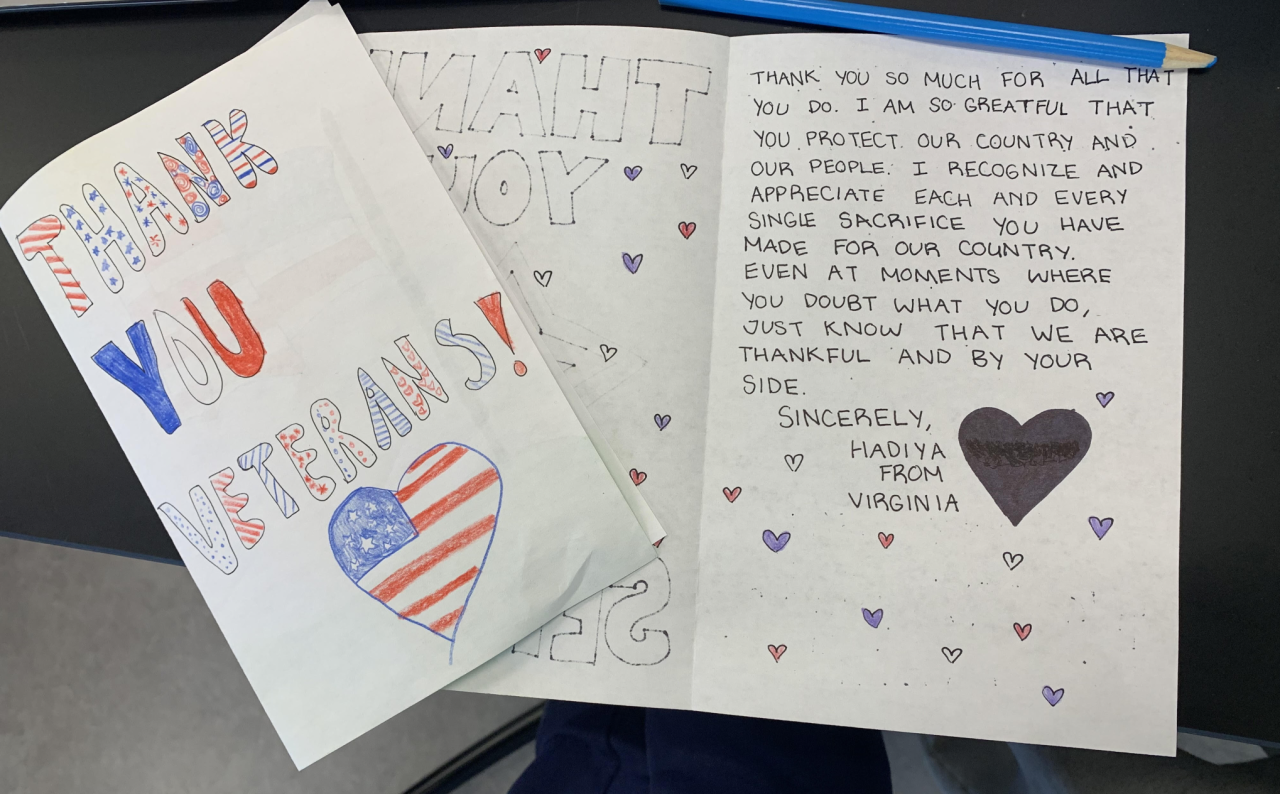 THANK
YOU
VETERANS!
THANK
YOU
THANK YOU SO MUCH FOR ALL THAT
YOU DO. I AM SO GREATFUL THAT
YOU PROTECT OUR COUNTRY AND
OUR PEOPLE. I RECOGNIZE AND
APPRECIATE EACH AND EVERY
SINGLE SACRIFICE YOU HAVE
MADE FOR OUR COUNTRY.
EVEN AT MOMENTS WHERE
YOU DOUBT WHAT YOU DO,
JUST KNOW THAT WE ARE
THANKFUL AND BY YOUR
SIDE.
SINCERELY,
HADIYA
FROM
VIRGINIA